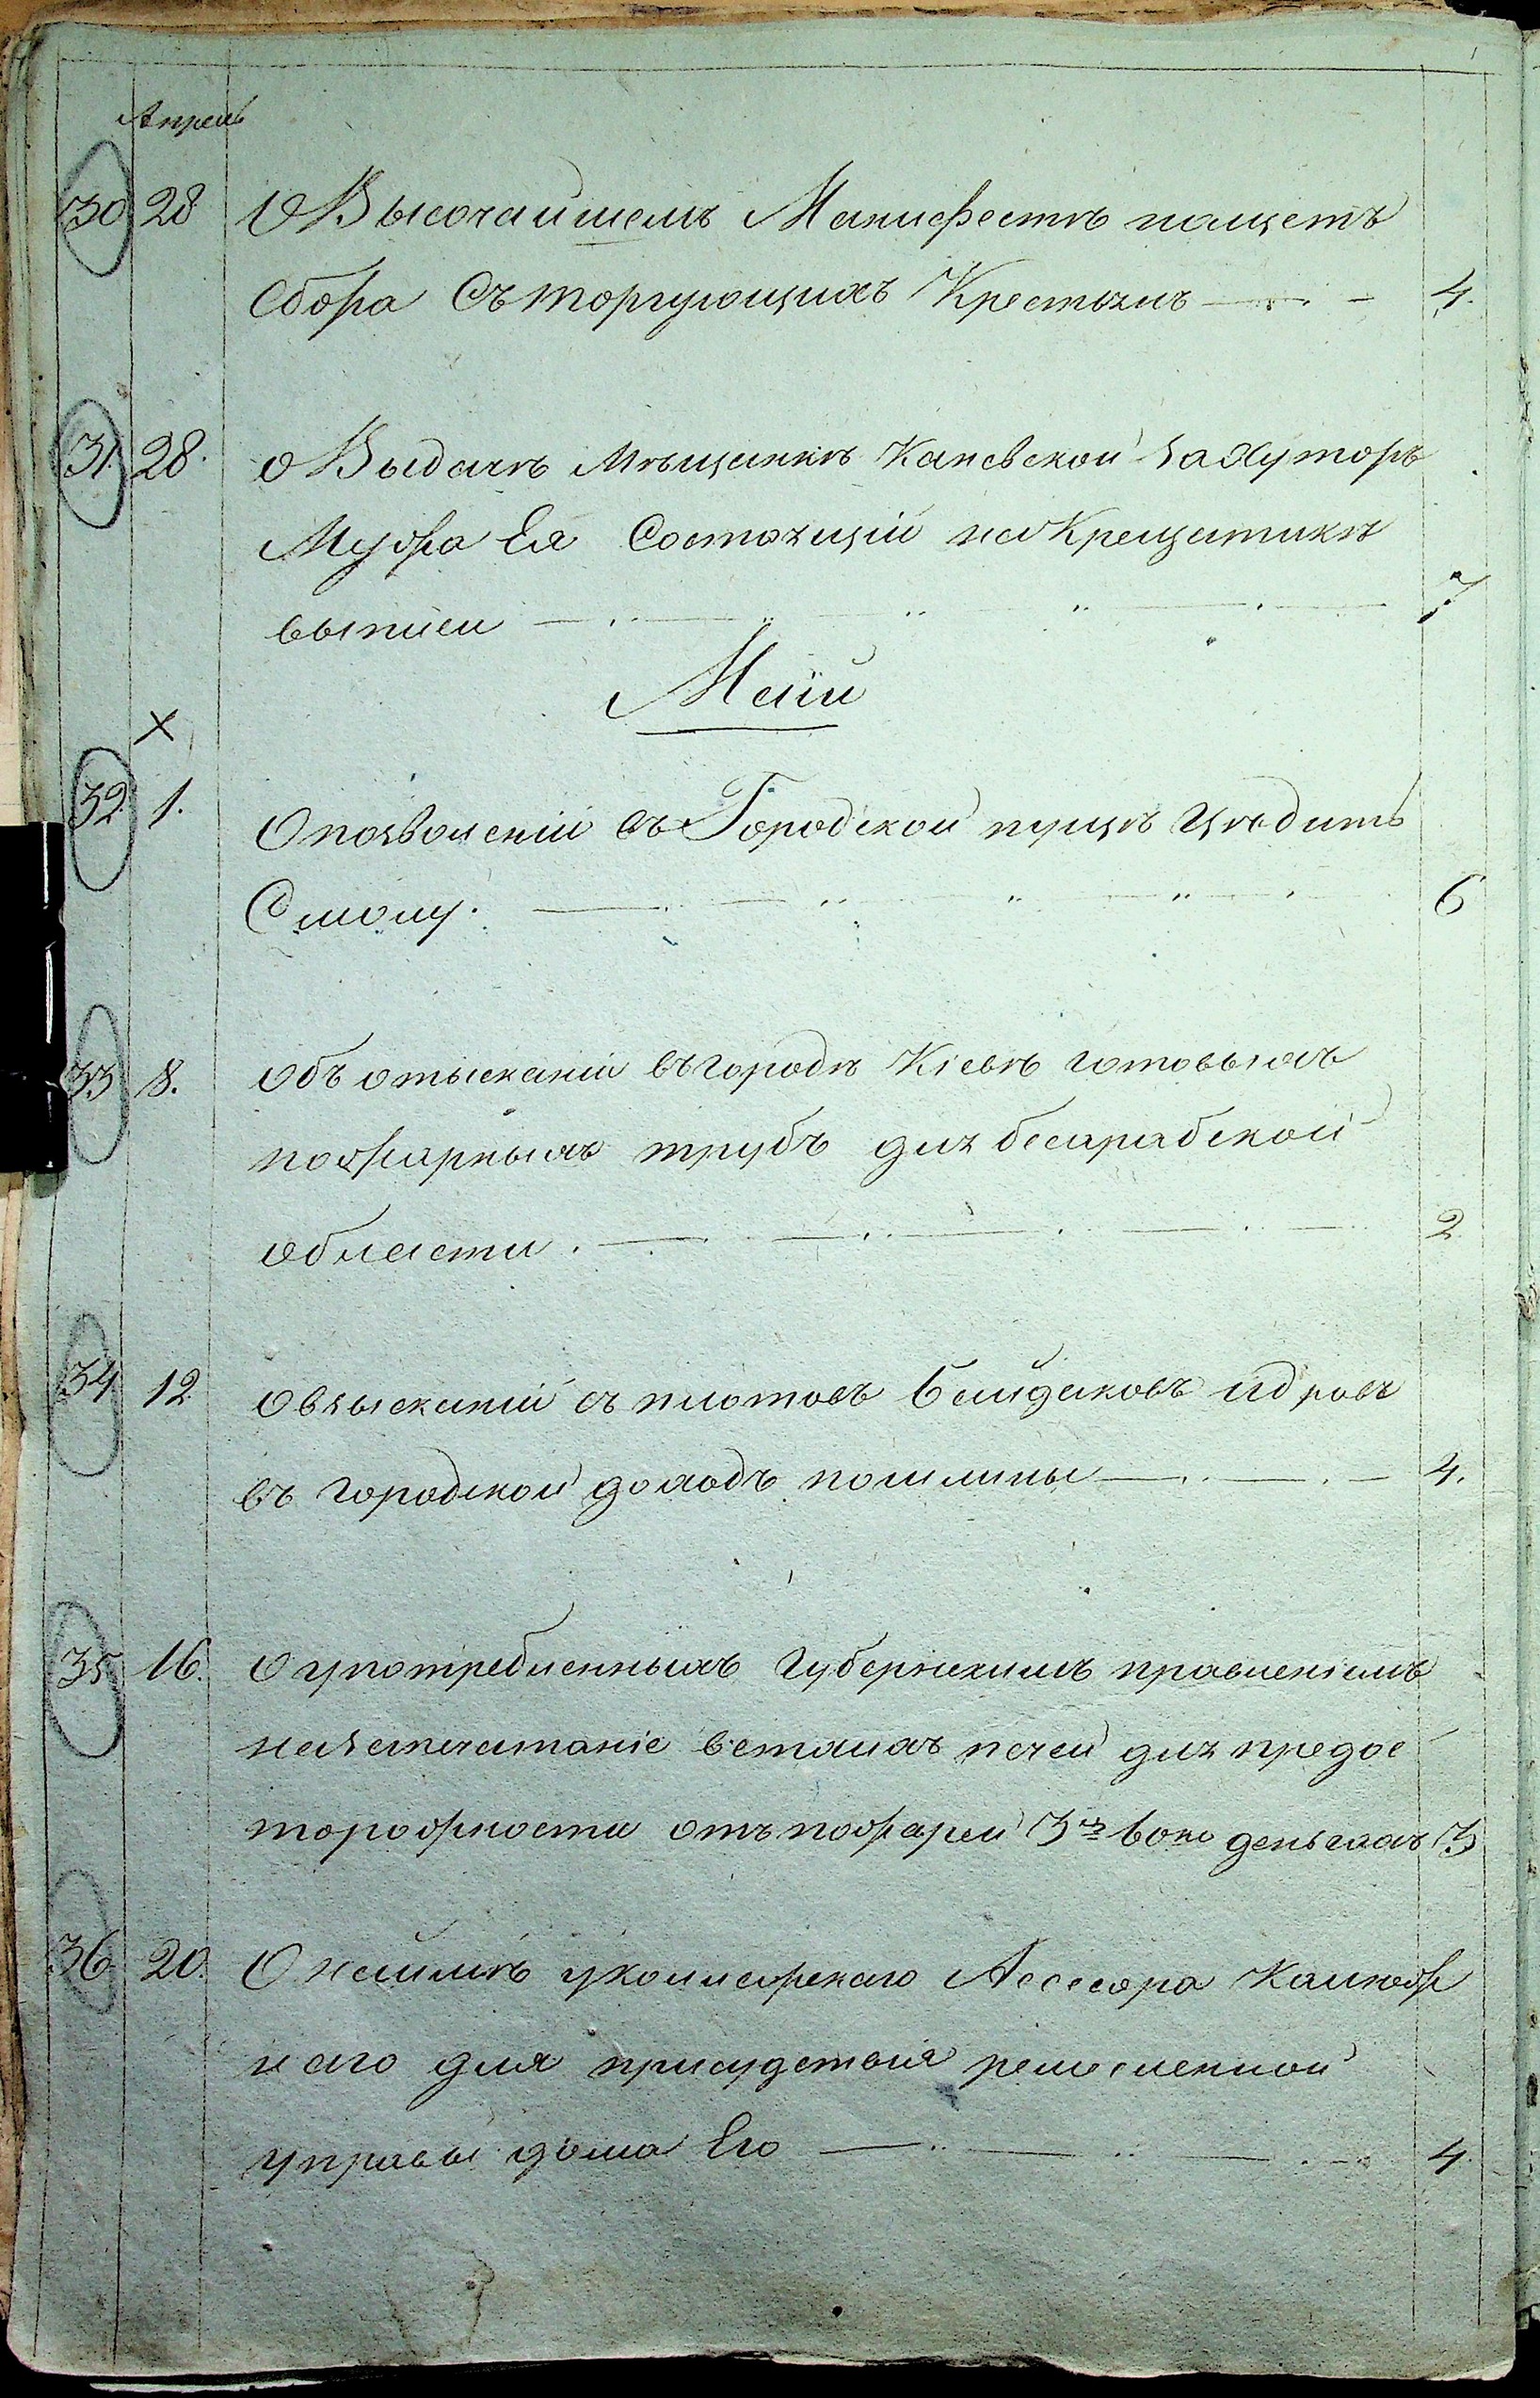 Апрель
30 28 О Высочайшемъ Манифестѣ нащетъ
сбора съ торгующихъ Крестьянъ 4.
31. 28. О Выдачѣ мѣщанкѣ Каневской на хуторъ
Мужа Ея Состоящій на Крещатикѣ
выписи 7
Маій
32. 1. О позволеніи въ Городской пущѣ цѣдить
Смолу. 6
33 8. Объ отысканіи въ городѣ Кіевѣ готовыхъ
пожарныхъ трубъ для бесарабской
области. 2
34 12 О взысканіи съ плотовъ байдаковъ и дровъ
въ городской доходъ пошлины 4.
35 16. О употребленныхъ губернскимъ правленіемъ
на запечатаніе въ домахъ печей для предос
торожности отъ пожаровъ деньгахъ 3
36 20. О наймѣ у колежскаго Асессора
наго для присудствія ремесленной
управы дома Его 4.